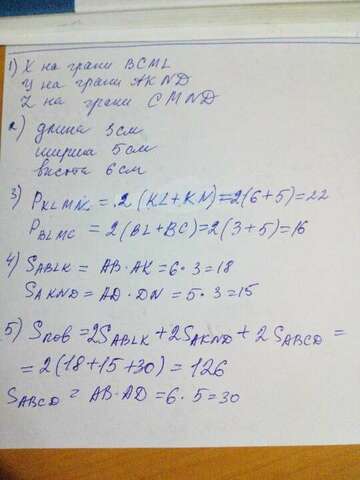 1) X на грани BCML
Y на грани AKND
Z на грани CMND
2) длина 3см
ширина 5см
высота 6см
3) P_KLMN = 2(KL+KN)=2(6+5)=22
P_BLMC = 2(BL+BC)=2(3+5)=16
4) S_ABLK = AB·AK=6·3=18
S_AKND = AD·DN=5·3=15
5) S_пов = 2S_ABLK + 2S_AKND + 2S_ABCD =
= 2(18+15+30) = 126
S_ABCD = AB·AD = 6·5=30